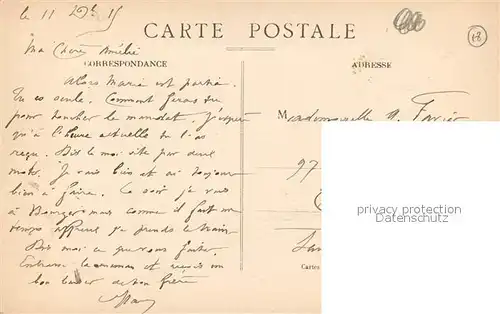 le 11 Xbre 15
CARTE POSTALE
18
Ma Chère Amélie
CORRESPONDANCE
ADRESSE
Alors Maria est partie.
Tu es seule. Comment feras tu
pour toucher le mandat. J'espère
qu'à l'heure actuelle tu l'as
reçu. Dis le moi vite par deux
mots. Je vais bien et ai toujours
bien à faire. Ce soir je vais
à Bourges mais comme il fait un
temps affreux je prends le train
Dis moi ce que vous faites.
Embrasse la maman et reçois un
bon baiser de ton frère
Mademoiselle A. Favier
97
privacy protection
Datenschutz
Cartes